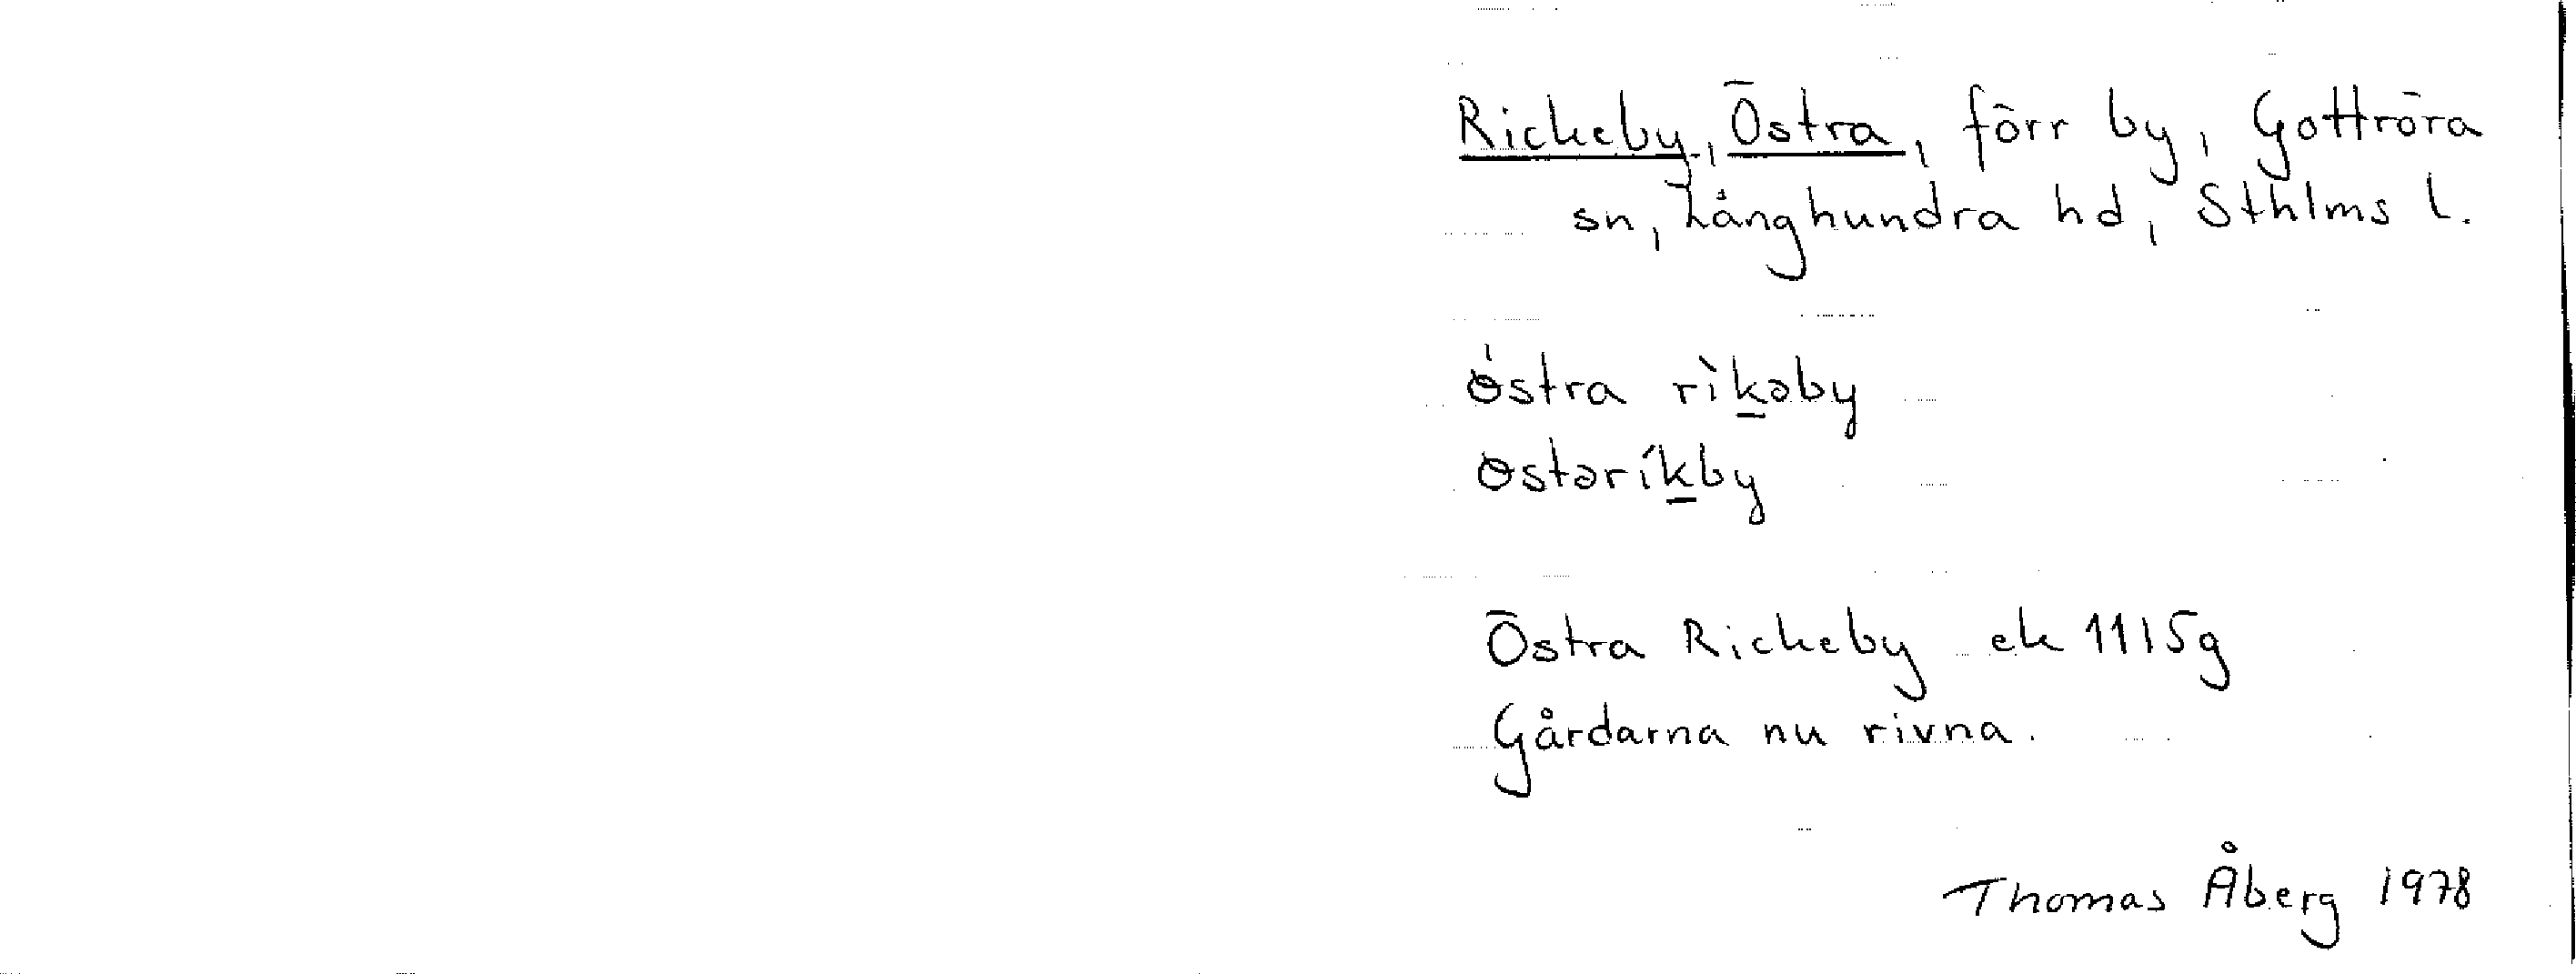 Rickeby, Östra, förr by, Gottröra
sn, Långhundra hd, Sthlms l.
ɵ́stra rìk̲əby
ɵstərík̲by
Östra Rickeby ek 11I5g
Gårdarna nu rivna.
Thomas Åberg 1978